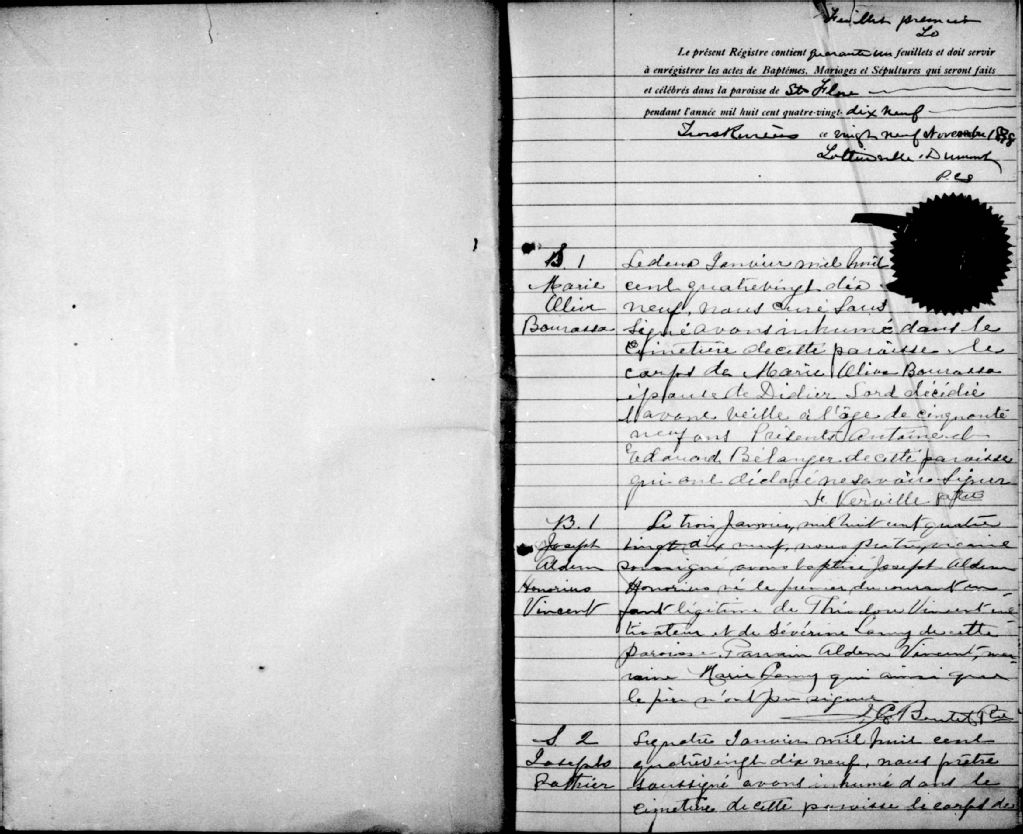 Feuillet premier
Lo
Le présent Régistre contient quarante un feuillets et doit servir
à enrégistrer les actes de Baptêmes, Mariages et Sépultures qui seront faits
et célébrés dans la paroisse de Ste Flore
pendant l'année mil huit cent quatre-vingt- dix neuf
Trois Rivières ce vingt neuf Novembre 1898
Lottinville & Dumont
P.C.S
B. 1
Marie
Olive
Bourassa
Le deux Janvier mil huit
cent quatrevingt dix
neuf, nous curé sous
signé avons inhumé dans le
cimetière de cette paroisse le
corps de Marie Olive Bourassa
épouse de Didier Lord décédée
l'avant veille à l'âge de cinquante
neuf ans Présents Antoine et
Edouard Bélanger de cette paroisse
qui ont déclaré ne savoir signer
Verville ptre
B. 1
Joseph
Aldem
Honorius
Vincent
Le trois Janvier, mil huit cent quatre
vingt dix neuf, nous Prêtre, vicaire
soussigné avons baptisé Joseph Aldem
Honorius né le premier du courant en-
fant légitime de Théodore Vincent cul
tivateur et de Sévérine Lamy de cette
paroisse Parrain Aldem Vincent, mar-
raine Marie Lamy qui ainsi que
le père n'ont pu signer
Ptre
S. 2
Joseph
Pothier
Le quatre Janvier mil huit cent
quatrevingt dix neuf, nous prêtre
soussigné avons inhumé dans le
cimetière de cette paroisse le corps de